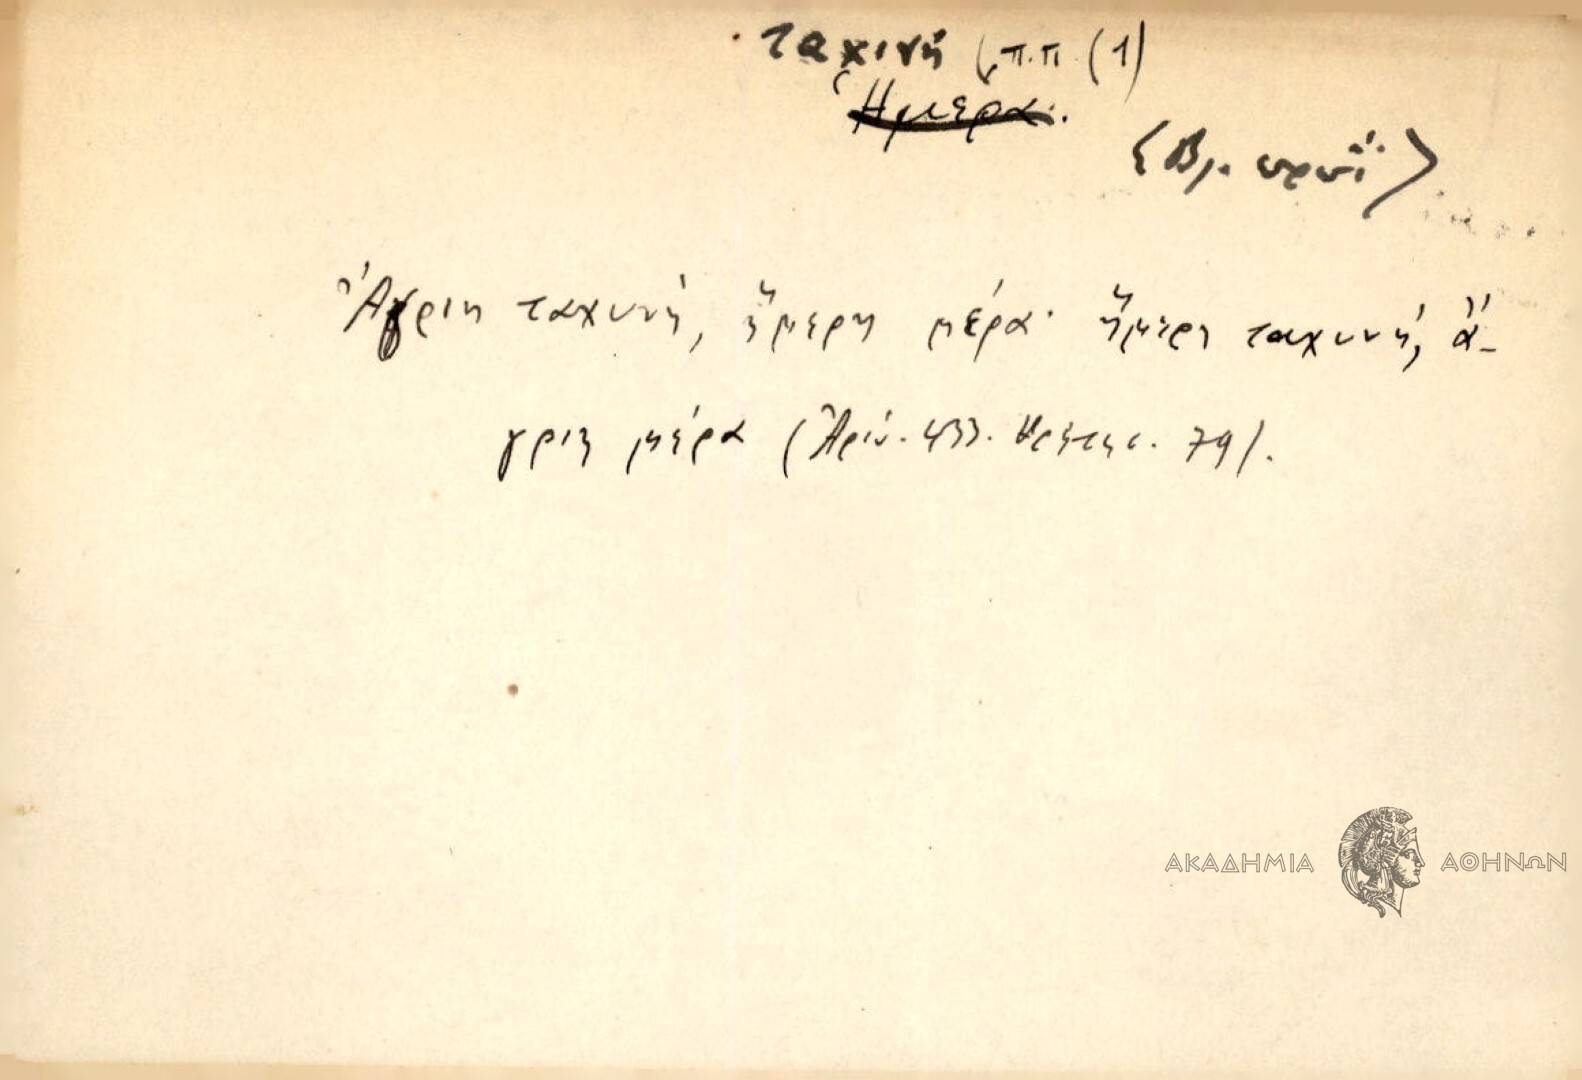 ταχινή (π.π. (1)
Ἡμέρα.
(Βλ. πρωΐ)
Ἄγριη ταχυνή, ἥμερη μέρα· ἥμερη ταχυνή, ἄ-
γριη μέρα (Ἀριν. 433. Κρήτης. 79).
ΑΚΑΔΗΜΙΑ ΑΘΗΝΩΝ